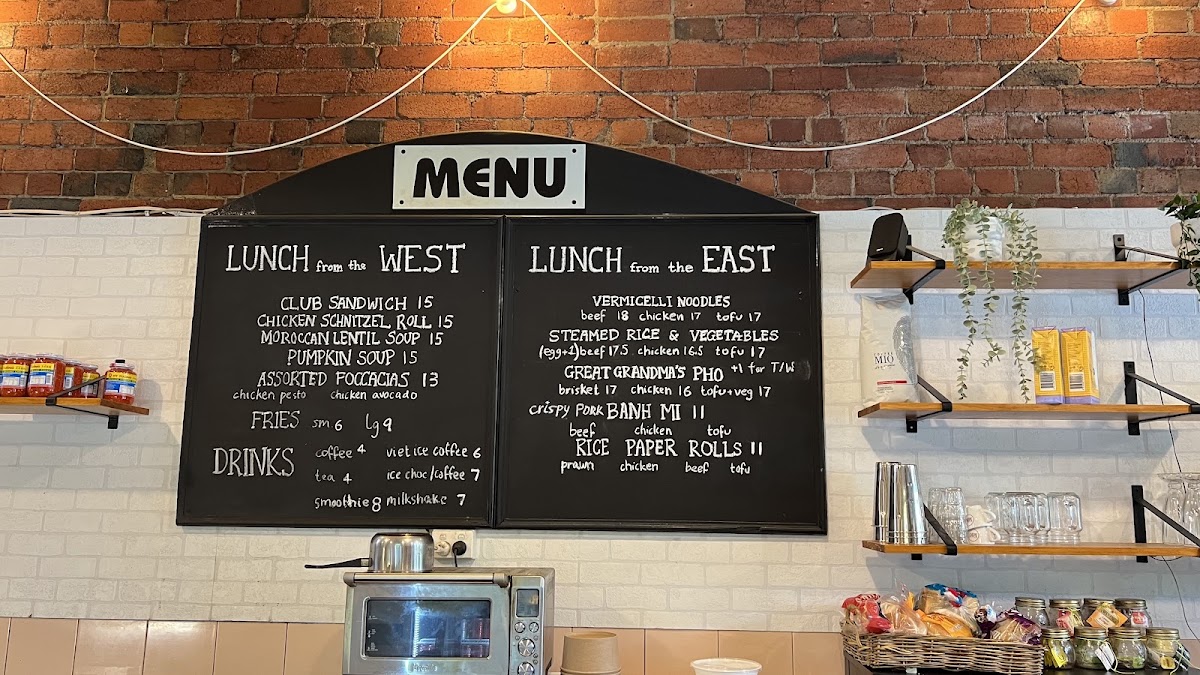 MENU
LUNCH from the WEST
CLUB SANDWICH 15
CHICKEN SCHNITZEL ROLL 15
MOROCCAN LENTIL SOUP 15
PUMPKIN SOUP 15
ASSORTED FOCCACIAS 13
chicken pesto chicken avocado
FRIES sm 6 lg 9
DRINKS coffee 4 viet ice coffee 6
tea 4 ice choc/coffee 7
smoothie 8 milkshake 7
LUNCH from the EAST
VERMICELLI NOODLES
beef 18 chicken 17 tofu 17
STEAMED RICE & VEGETABLES
(egg+1) beef 17.5 chicken 16.5 tofu 17
GREAT GRANDMA'S PHO +1 for T/W
brisket 17 chicken 16 tofu+veg 17
crispy PORK BANH MI 11
beef chicken tofu
RICE PAPER ROLLS 11
prawn chicken beef tofu
MIO